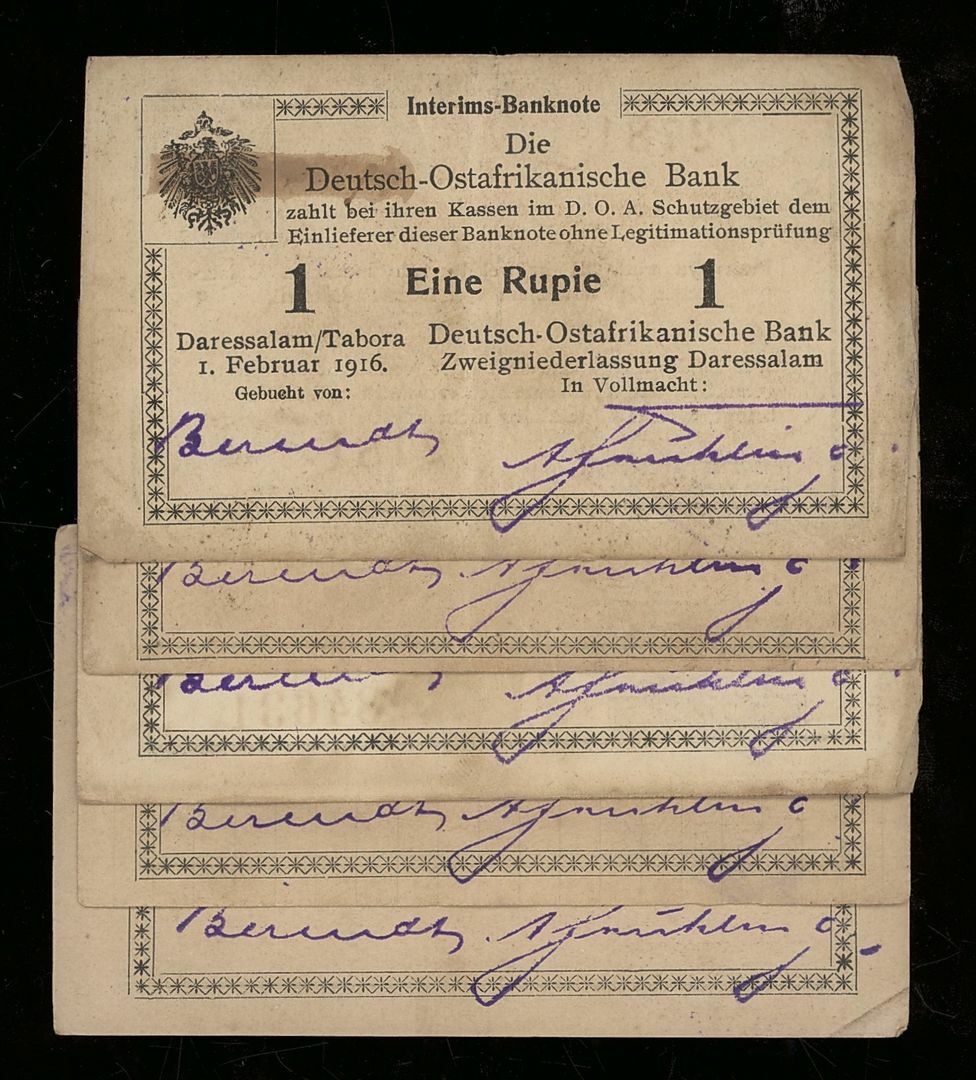 Interims-Banknote
Die
Deutsch-Ostafrikanische Bank
zahlt bei ihren Kassen im D. O. A. Schutzgebiet dem
Einlieferer dieser Banknote ohne Legitimationsprüfung
1 Eine Rupie 1
Daressalam/Tabora
1. Februar 1916.
Gebucht von:
Deutsch-Ostafrikanische Bank
Zweigniederlassung Daressalam
In Vollmacht:
Berendt
Berendt
Berendt
Berendt
Berendt